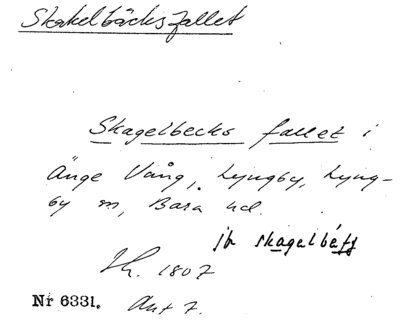 Skakelbäcksfallet
Skagelbecks fallet i
Änge Vång, Lyngby, Lyng-
by sn, Bara hd.
jfr skagelbé
1807
Nr 6331. Akt 7.